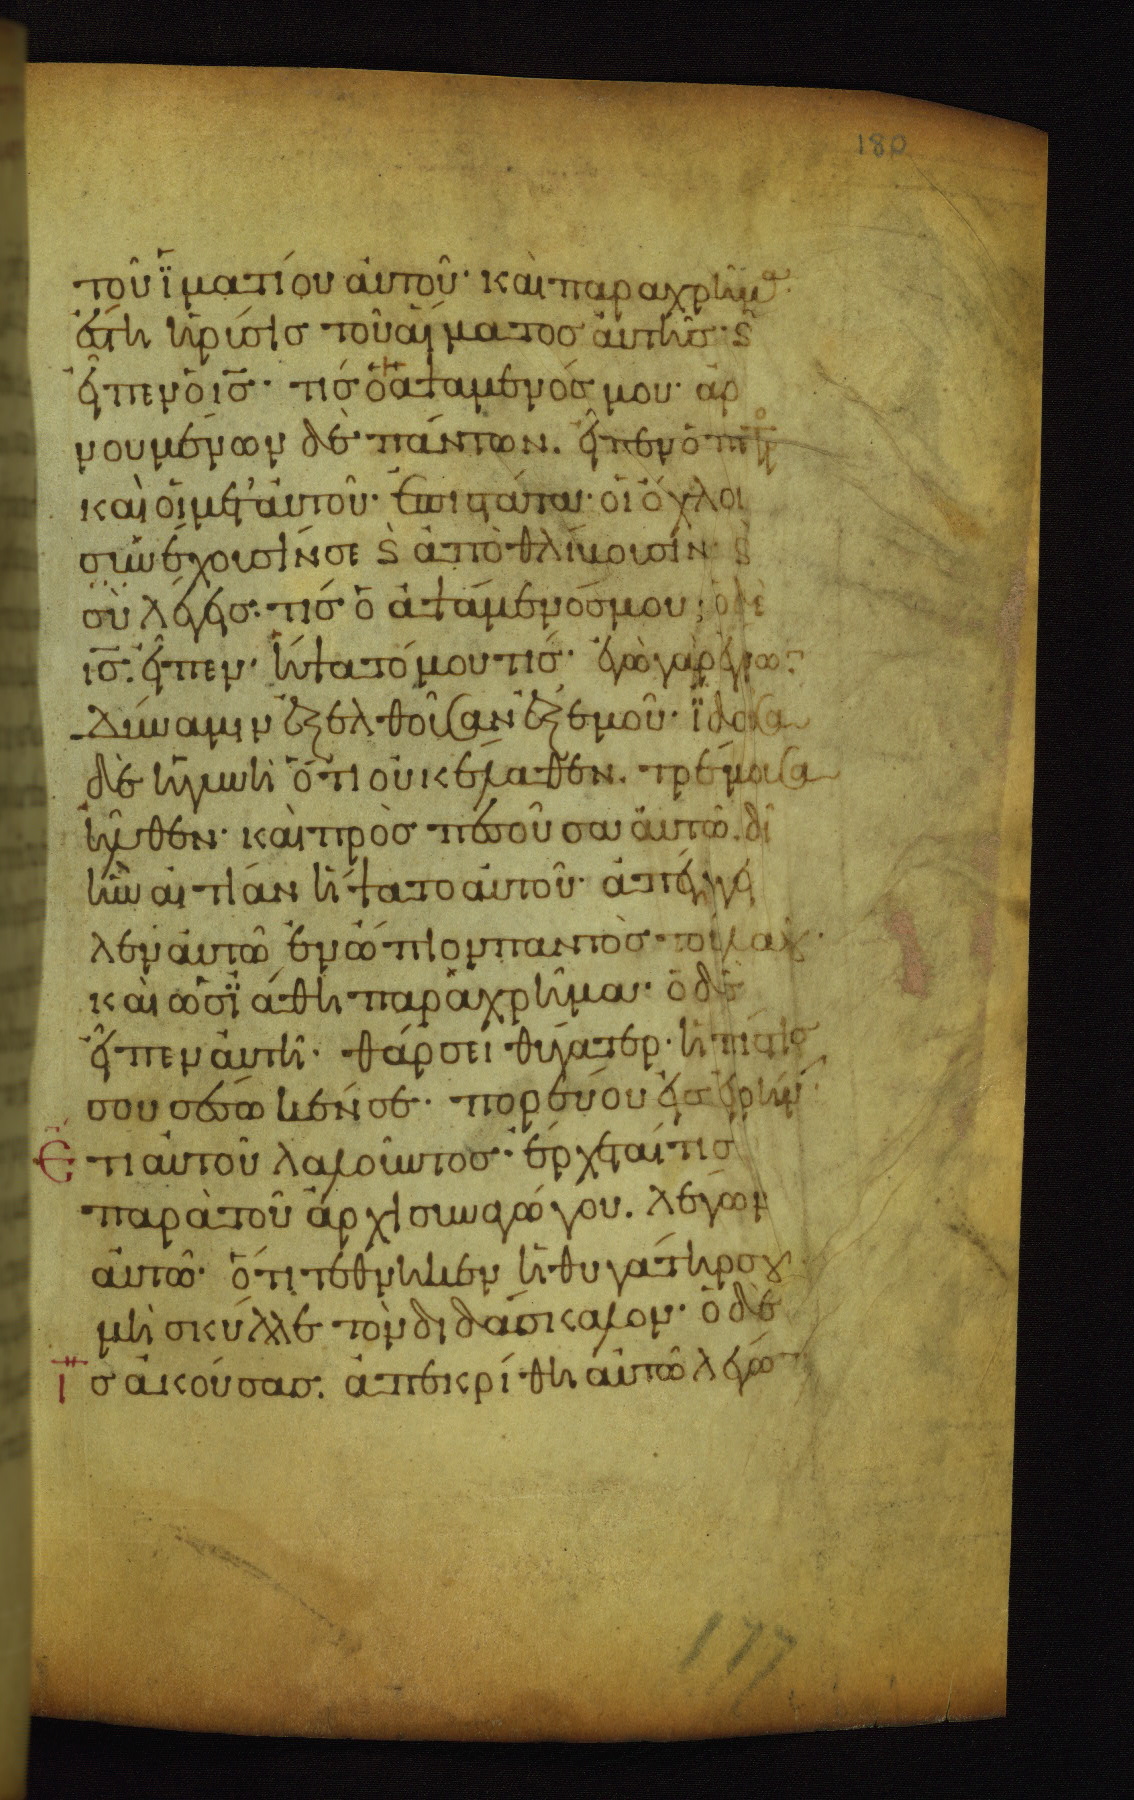 180
τοῦ ἱματίου αὐτοῦ· καὶ παραχρῆμα
ἔστη ἡ ρύσισ τοῦ αἵματοσ αὐτῆσ· ϗ
εἶπεν ὁ ισ̅· τίσ ὁ ἁψάμενόσ μου· ἀρ
νουμένων δὲ πάντων. εἶπεν ὁ πέτρος
καὶ οἱ μετ' αὐτοῦ· ἐπιστάτα· οἱ ὄχλοι
συνέχουσίν σε ϗ ἀποθλίβουσιν· ϗ
σὺ λέγεισ· τίσ ὁ ἁψάμενόσ μου; ὁ δὲ
ισ̅· εἶπεν· ἥψατό μου τίσ· ἐγὼ γὰρ ἔγνων
δύναμιν ἐξελθοῦσαν ἐξ ἐμοῦ· ἰδοῦσα
δὲ ἡ γυνὴ ὅτι οὐκ ἔλαθεν. τρέμουσα
ἦλθεν· καὶ προσπεσοῦσα αὐτῶ. δι
ἣν αἰτίαν ἥψατο αὐτοῦ· ἀπήγγει
λεν αὐτῶ ἐνώπιον παντὸσ τοῦ λαοῦ·
καὶ ὡσ ἰάθη παραχρῆμα· ὁ δὲ
εἶπεν αὐτῆ· θάρσει θύγατερ· ἡ πίστισ
σου σέσωκέν σε· πορεύου εἰσ εἰρήνην·
Ἔτι αὐτοῦ λαλοῦντοσ· ἔρχεταί τισ
παρὰ τοῦ ἀρχισυναγώγου. λέγων
αὐτῶ· ὅτι τέθνηκεν ἡ θυγάτηρ σου
μὴ σκύλλε τὸν διδάσκαλον· ὁ δὲ
ι̅σ ἀκούσασ. ἀπεκρίθη αὐτῶ λέγων
177